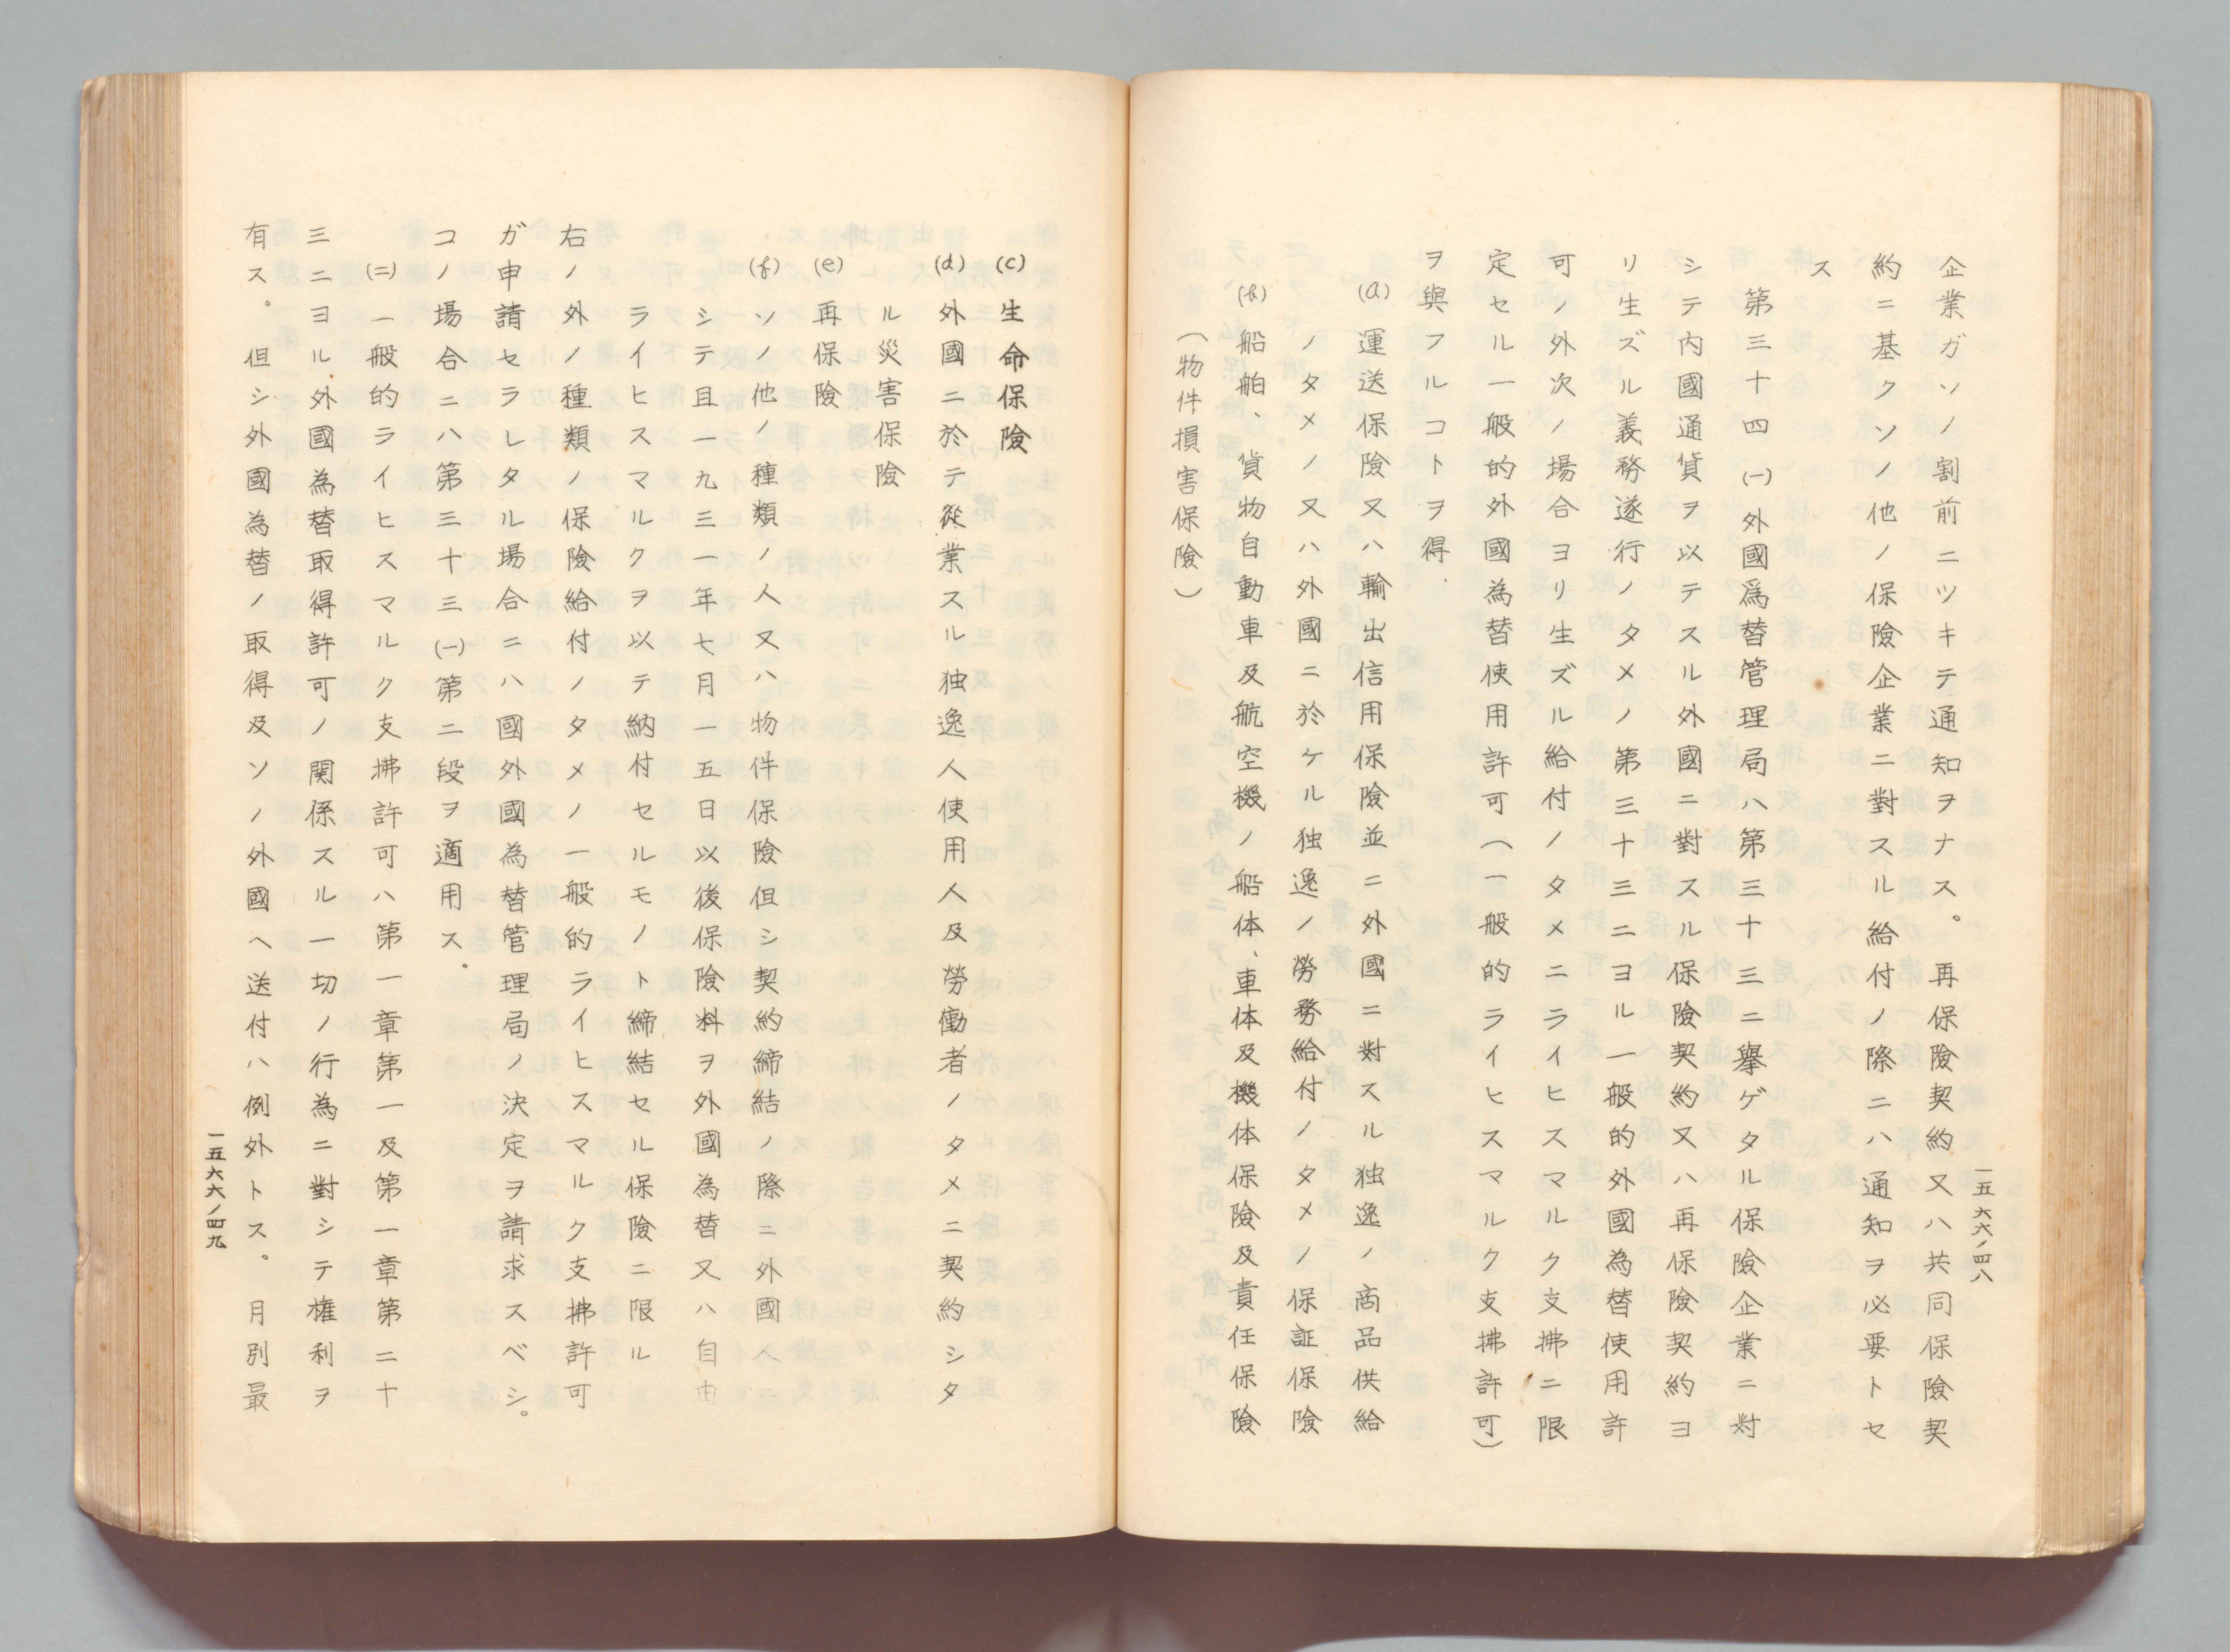 一五六六ノ四八
企業ガソノ割前ニツキテ通知ヲナス。再保險契約又ハ共同保險契
約ニ基クソノ他ノ保險企業ニ對スル給付ノ際ニハ通知ヲ必要トセ
ス
第三十四(一)外國爲替管理局ハ第三十三ニ擧ゲタル保險企業ニ対
シテ內國通貨ヲ以テスル外國ニ對スル保險契約又ハ再保險契約ヨ
リ生ズル義務遂行ノタメノ第三十三ニヨル一般的外國為替使用許
可ノ外次ノ場合ヨリ生ズル給付ノタメニライヒスマルク支拂ニ限
定セル一般的外國為替使用許可(一般的ライヒスマルク支拂許可)
ヲ與フルコトヲ得.
(a)運送保險又ハ輸出信用保險並ニ外國ニ対スル独逸ノ商品供給
ノタメノ又ハ外國ニ於ケル独逸ノ勞務給付ノタメノ保証保險
(b)船舶、貨物自動車及航空機ノ船体、車体及機体保險及責任保險
(物件損害保險)
(c)生命保險
(d)外國ニ於テ従業スル独逸人使用人及勞働者ノタメニ契約シタ
ル災害保險
(e)再保險
(f)ソノ他ノ種類ノ人又ハ物件保險但シ契約締結ノ際ニ外國人ニ
シテ且一九三一年七月一五日以後保險料ヲ外國為替又ハ自由
ライヒスマルクヲ以テ納付セルモノト締結セル保險ニ限ル
右ノ外ノ種類ノ保險給付ノタメノ一般的ライヒスマルク支拂許可
ガ申請セラレタル場合ニハ國外國為替管理局ノ決定ヲ請求スベシ。
コノ場合ニハ第三十三(一)第二段ヲ適用ス。
(二)一般的ライヒスマルク支拂許可ハ第一章第一及第一章第二十
三ニヨル外國為替取得許可ノ関係スル一切ノ行為ニ對シテ権利ヲ
有ス。但シ外國為替ノ取得及ソノ外國ヘ送付ハ例外トス。月別最
一五六六ノ四九